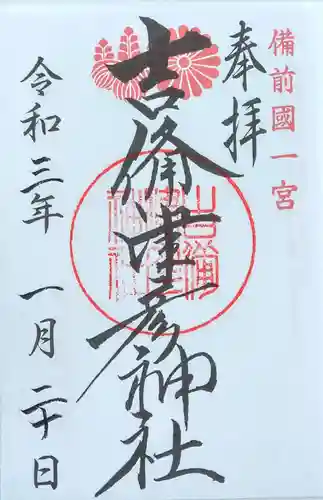 備前國一宮
奉拝
吉備津彦神社
令和三年 一月二十日